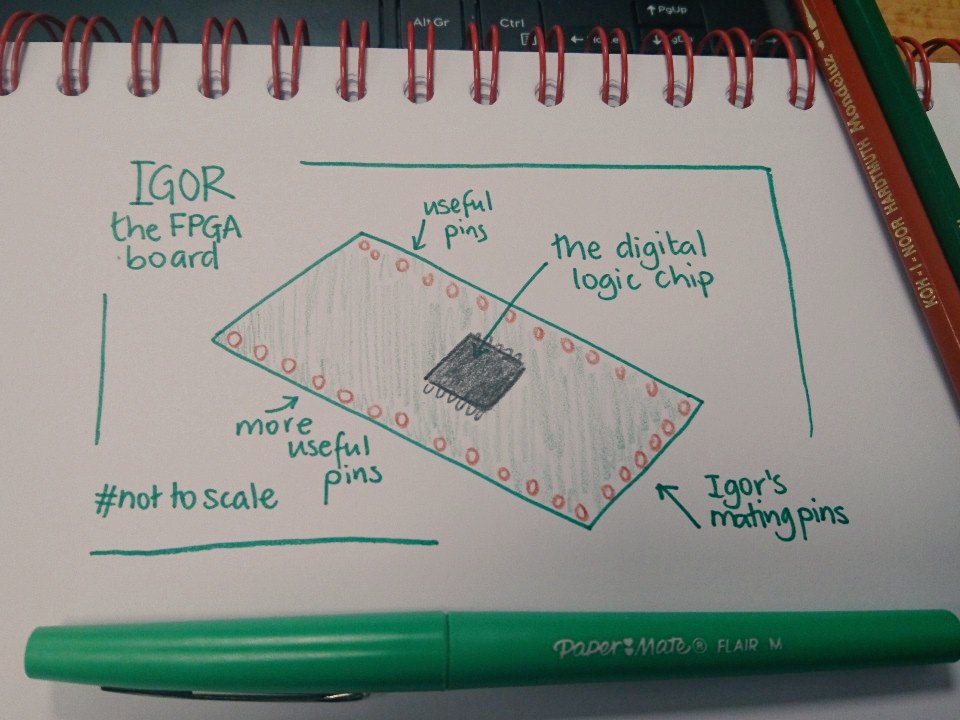 Alt Gr
Ctrl
↑ PgUp
IGOR
the FPGA
board
useful
pins
the digital
logic chip
more
useful
pins
#not to scale
Igor's
mating pins
Paper Mate® FLAIR M
KOH-I-NOOR HARDTMUTH Mondeluz